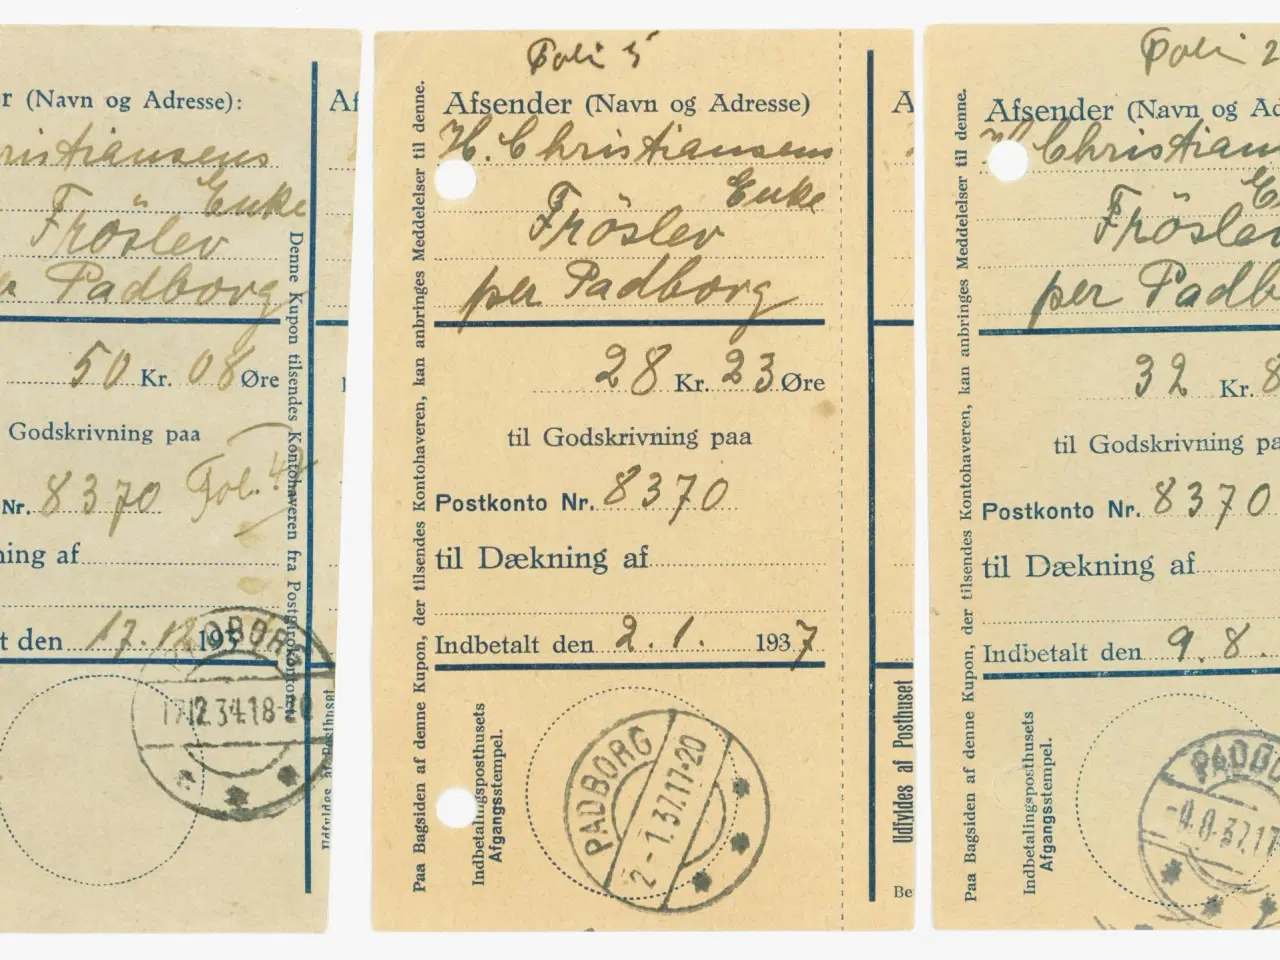 r (Navn og Adresse):
ristiansens
Enke
Fröslev
Padborg
50 Kr. 08 Øre
Godskrivning paa
Nr. 8370
Fol. 4
ning af
t den 17.12 193
PADBORG
17.12.34.18-20
Denne Kupon tilsendes Kontohaveren fra Postgirokontoret
Udfyldes af Posthuset
Af
Foli 5
Afsender (Navn og Adresse)
H. Christiansens
Enke
Fröslev
per Padborg
28 Kr. 23 Øre
til Godskrivning paa
Postkonto Nr. 8370
til Dækning af
Indbetalt den 2.1. 1937
Paa Bagsiden af denne Kupon, der tilsendes Kontohaveren, kan anbringes Meddelelser til denne.
Indbetalingsposthusets
Afgangsstempel.
PADBORG
2-1.37.17-20
A
Udfyldes af Posthuset
Be
Foli 2
Afsender (Navn og Ad
H. Christian
E
Fröslev
per Padb
32 Kr. 8
til Godskrivning pa
Postkonto Nr. 8370
til Dækning af
Indbetalt den 9.8.
Paa Bagsiden af denne Kupon, der tilsendes Kontohaveren, kan anbringes Meddelelser til denne.
Indbetalingsposthusets
Afgangsstempel.
PADBO